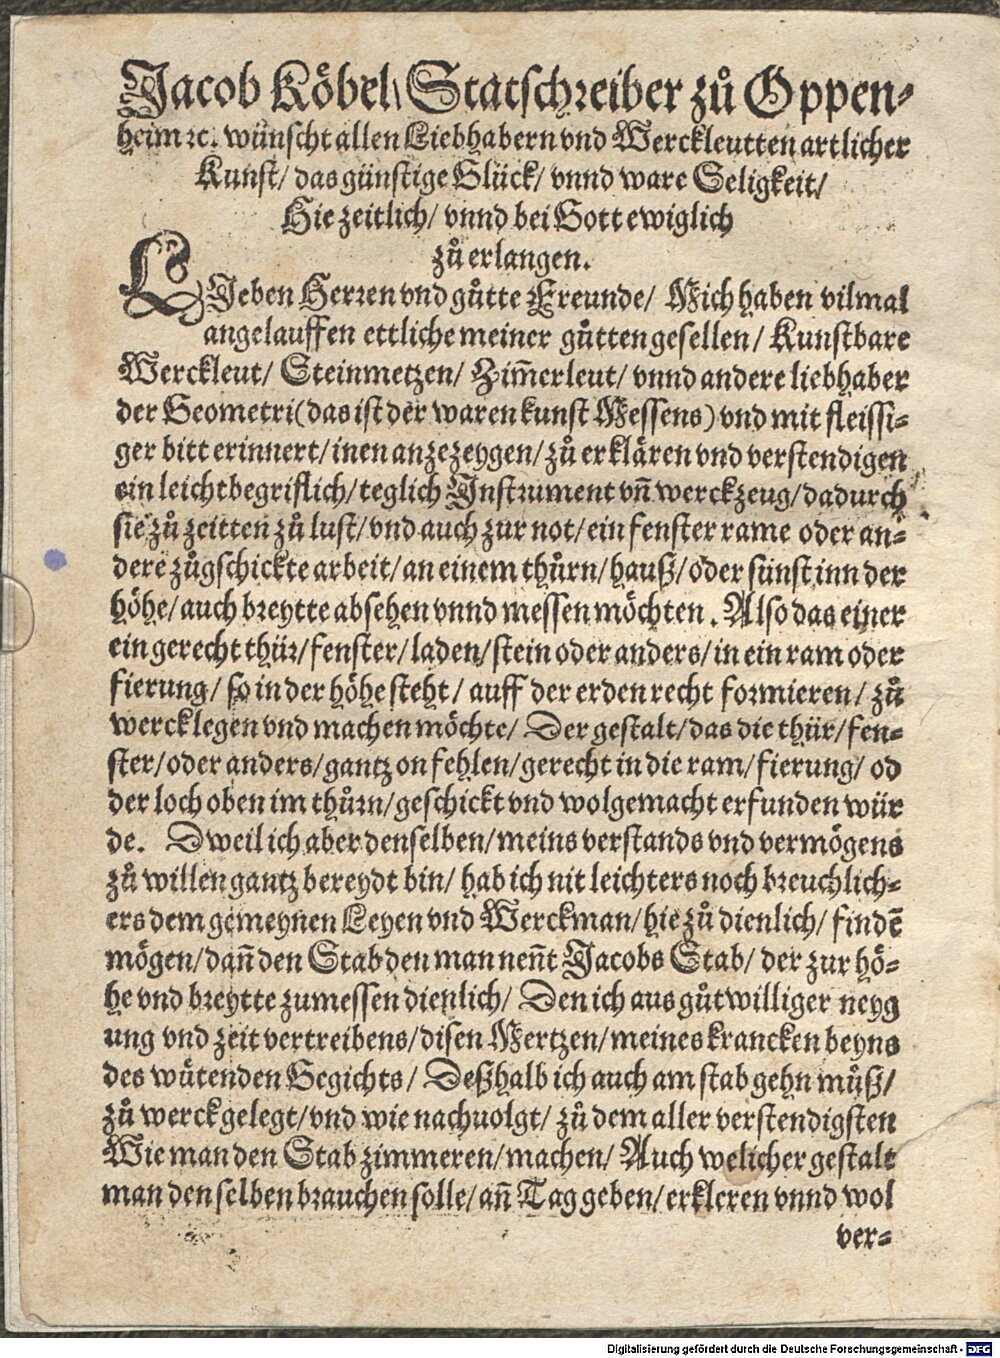 Jacob Köbel/ Statschreiber zů Oppen-
heim ꝛc. wünscht allen Liebhabern vnd Werckleutten artlicher
Kunst/ das günstige Glück/ vnnd ware Seligkeit/
Hie zeitlich/ vnnd bei Gott ewiglich
zů erlangen.
LIeben Herren vnd gůtte Freunde/ Mich haben vilmal
angelauffen ettliche meiner gůtten gesellen/ Kunstbare
Werckleut/ Steinmetzen/ Zim̃erleut/ vnnd andere liebhaber
der Geometri (das ist der waren kunst Messens) vnd mit fleissi-
ger bitt erinnert/ inen anzezeygen/ zů erklären vnd verstendigen
ein leicht begriflich/ teglich Instrument vñ werckzeug/ dadurch
sie zů zeitten zů lust/ vnd auch zur not/ ein fenster rame oder an-
dere zůgschickte arbeit/ an einem thůrn/ hauß/ oder sünst inn der
höhe/ auch breytte absehen vnnd messen möchten. Also das einer
ein gerecht thür/ fenster/ laden/ stein oder anders/ in ein ram oder
fierung/ so in der höhe steht/ auff der erden recht formieren/ zů
werck legen vnd machen möchte/ Der gestalt/ das die thür/ fen-
ster/ oder anders/ gantz on fehlen/ gerecht in die ram/ fierung/ od
der loch oben im thůrn/ geschickt vnd wolgemacht erfunden wür
de. Dweil ich aber denselben/ meins verstands vnd vermögens
zů willen gantz bereydt bin/ hab ich nit leichters noch breuchlich-
ers dem gemeynen Leyen vnd Werckman/ hie zů dienlich/ findẽ
mögen/ dañ den Stab den man neñt Jacobs Stab/ der zur hö-
he vnd breytte zumessen dienlich/ Den ich aus gůtwilliger neyg
ung vnd zeit vertreibens/ disen Mertzen/ meines krancken beyns
des wütenden Gegichts/ Deßhalb ich auch am stab gehn můß/
zů werck gelegt/ vnd wie nachuolgt/ zů dem aller verstendigsten
Wie man den Stab zimmeren/ machen/ Auch welicher gestalt
man den selben brauchen solle/ añ Tag geben/ erkleren vnnd wol
ver-
Digitalisierung gefördert durch die Deutsche Forschungsgemeinschaft - DFG